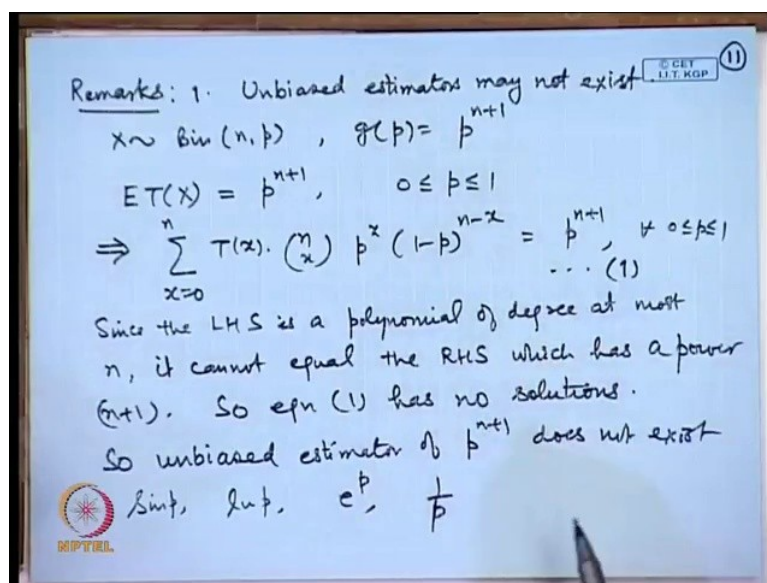 Remarks: 1. Unbiased estimators may not exist.
© CET
I.I.T. KGP
11
X ~ Bin (n, p) , g(p) = p^{n+1}
E T(X) = p^{n+1}, 0 ≤ p ≤ 1
⇒ \sum_{x=0}^{n} T(x). \binom{n}{x} p^x (1-p)^{n-x} = p^{n+1}, ∀ 0≤p≤1
... (1)
Since the LHS is a polynomial of degree at most
n, it cannot equal the RHS which has a power
(n+1). So eqn (1) has no solutions.
So unbiased estimator of p^{n+1} does not exist
Sin p, ln p, e^p, \frac{1}{p}
NPTEL